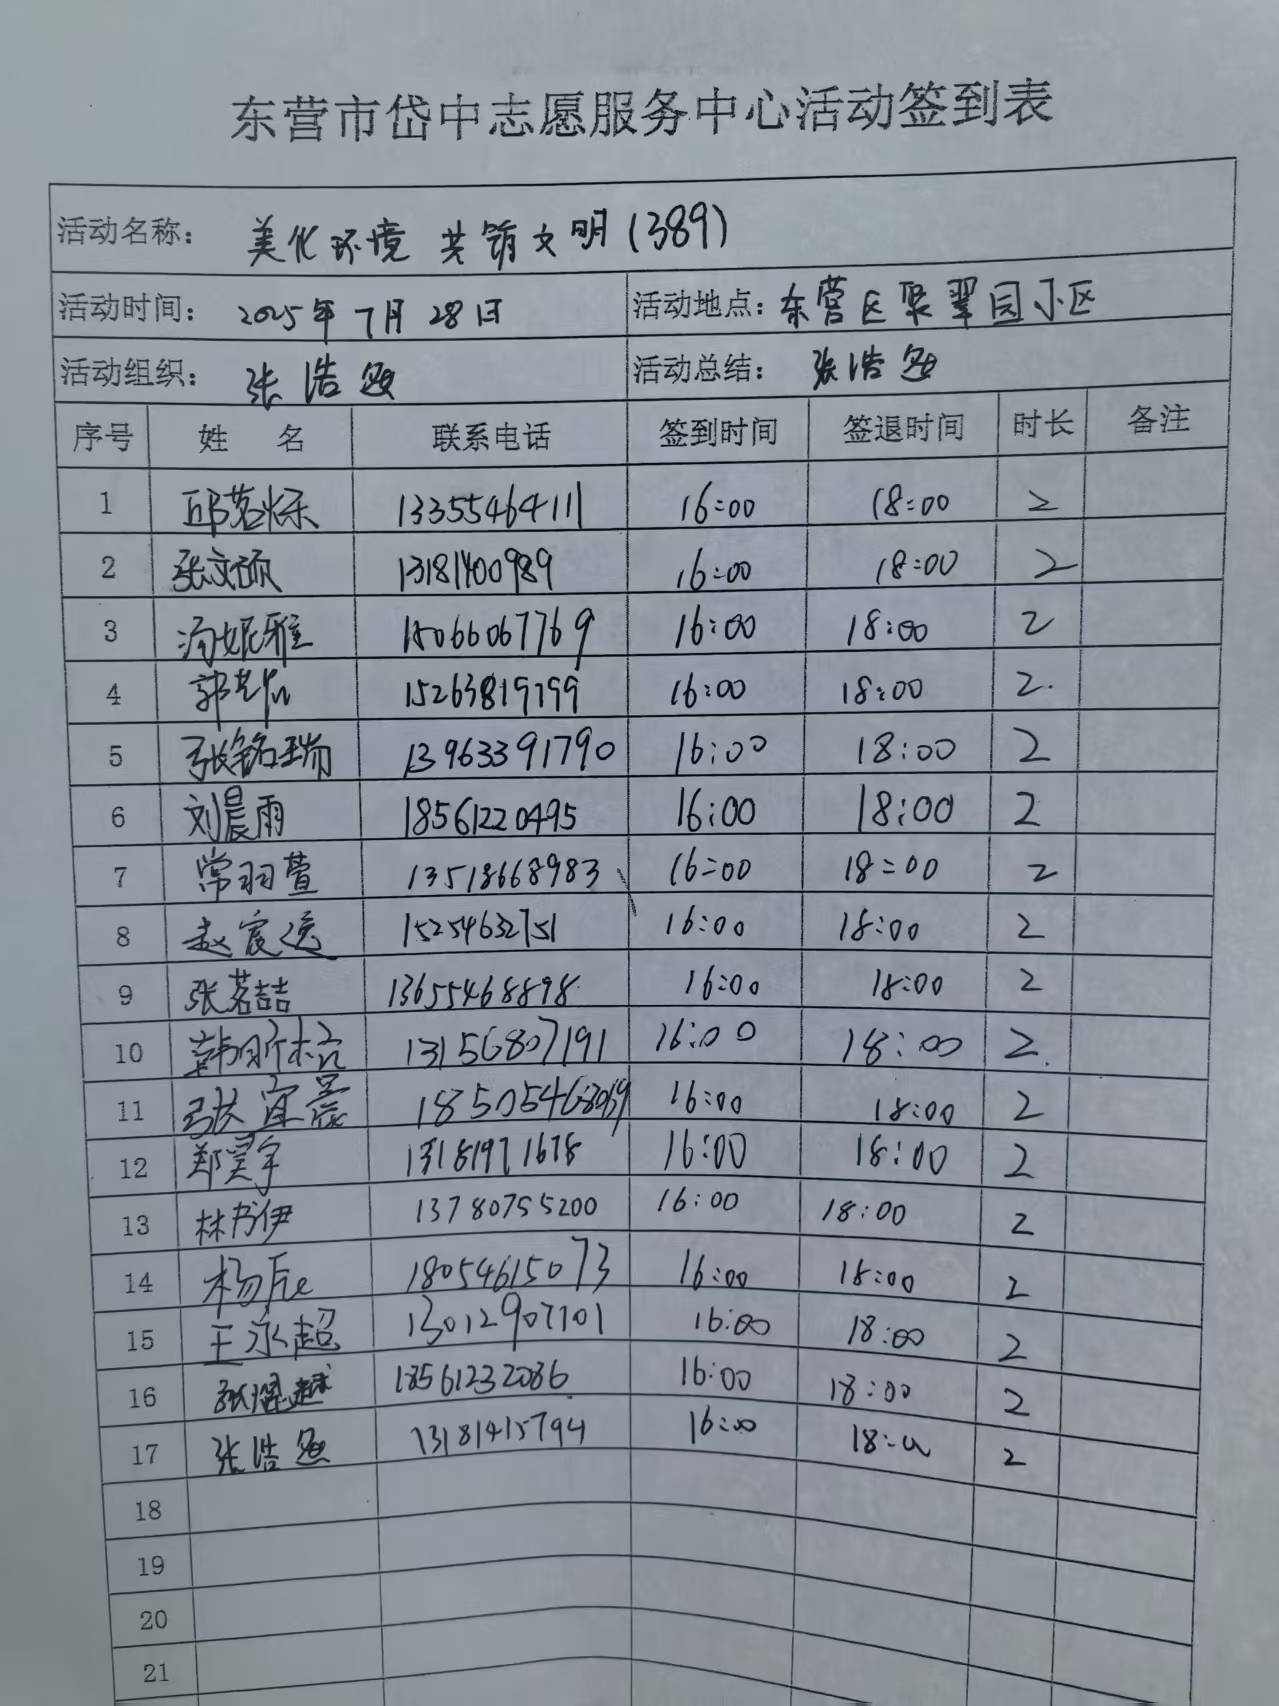 东营市岱中志愿服务中心活动签到表
活动名称： 美化环境 共筑文明(389)
活动时间： 2025年7月28日 活动地点：东营区聚翠园小区
活动组织： 张浩 活动总结： 张浩
序号 姓 名 联系电话 签到时间 签退时间 时长 备注
1 邱茗烁 13355464111 16:00 18:00 2
2 张文硕 13181400989 16:00 18:00 2
3 汤妮雅 15066067769 16:00 18:00 2
4 郭芝怡 15263819799 16:00 18:00 2
5 张铭瑞 13963391790 16:00 18:00 2
6 刘晨雨 18561220495 16:00 18:00 2
7 常羽萱 13518668983 16:00 18:00 2
8 赵宸逸 15254632751 16:00 18:00 2
9 张茗喆 13655468898 16:00 18:00 2
10 韩 13156807191 16:00 18:00 2
11 张宜晨 16:00 18:00 2
12 郑昊宇 13181971678 16:00 18:00 2
13 林书伊 13780755200 16:00 18:00 2
14 杨辰 18054615073 16:00 18:00 2
15 王永超 13012907101 16:00 18:00 2
16 张 18561232086 16:00 18:00 2
17 张浩 13181415794 16:00 18:00 2
18
19
20
21